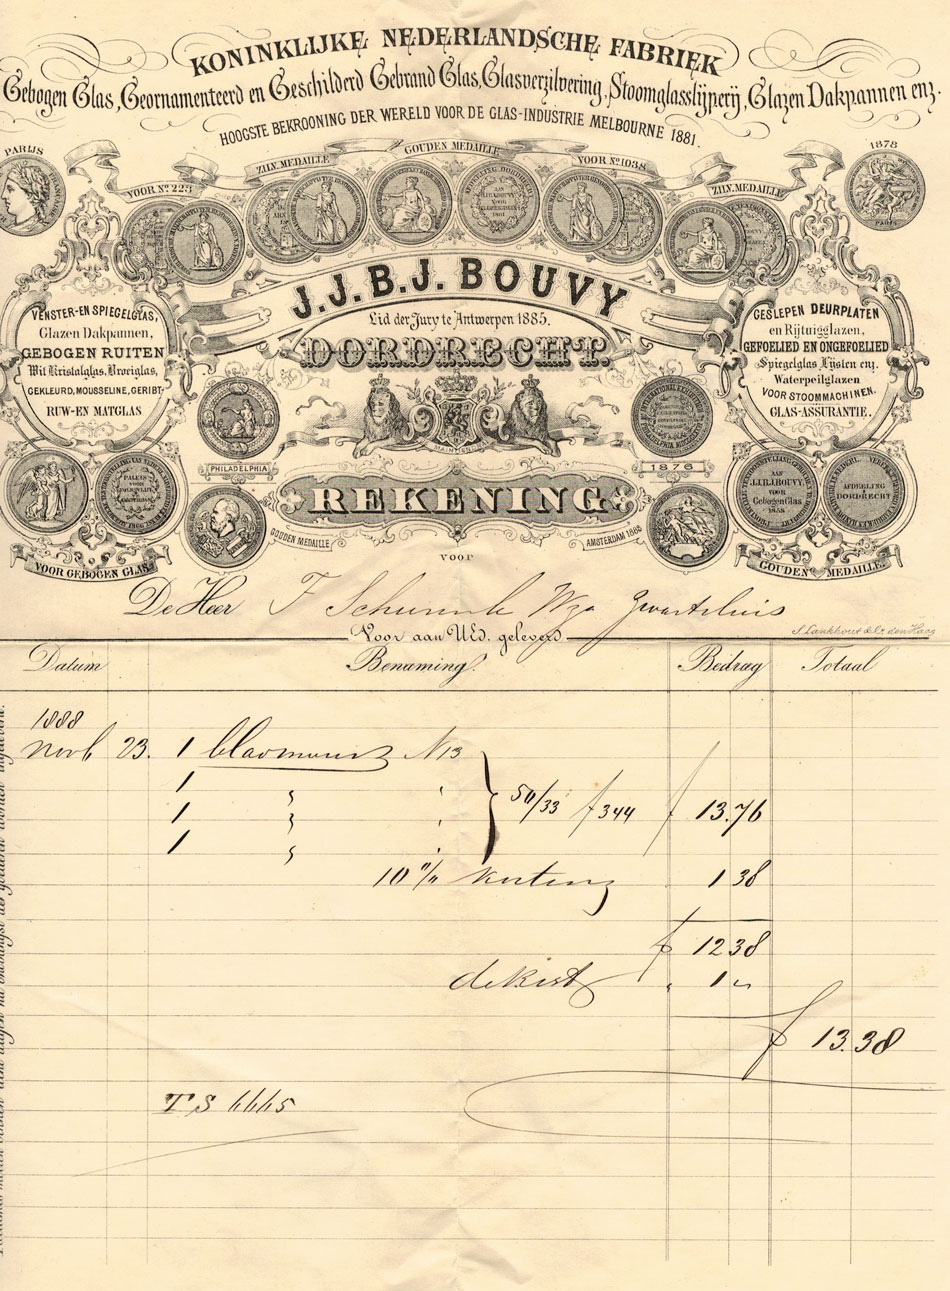 KONINKLIJKE NEDERLANDSCHE FABRIEK
Gebogen Glas, Geornamenteerd en Geschilderd Gebrand Glas, Glasverzilvering, Stoomglasslijperij, Glazen Dakpannen enz.
HOOGSTE BEKROONING DER WERELD VOOR DE GLAS-INDUSTRIE MELBOURNE 1881.
PARIJS
1878
VOOR No 223
ZILV. MEDAILLE
GOUDEN MEDAILLE
VOOR No 1038
ZILV. MEDAILLE
PARIS
J.J.B.J. BOUVY
Lid der Jury te Antwerpen 1885.
DORDRECHT.
VENSTER- EN SPIEGELGLAS,
Glazen Dakpannen,
GEBOGEN RUITEN
Wit Kristalglas, Broeiglas,
GEKLEURD, MOUSSELINE, GERIBT-
RUW- EN MATGLAS
GESLEPEN DEURPLATEN
en Rijtuigglazen,
GEFOELIED EN ONGEFOELIED
Spiegelglas Lijsten enz.
Waterpeilglazen
VOOR STOOMMACHINEN.
GLAS-ASSURANTIE.
PHILADELPHIA
1876
PALEIS
VOOR
VOLKSVLIJT
AAN
J.J.B.J. BOUVY.
VOOR
Gebogen Glas
AFDEELING
DORDRECHT
REKENING
GOUDEN MEDAILLE
AMSTERDAM 1883
VOOR GEBOGEN GLAS
GOUDEN MEDAILLE.
VOOR
De Heer F Schuurink Wzn Zwartsluis
Voor aan UEd. geleverd
S. Lankhout & Co. den Haag
Datum Benaming. Bedrag Totaal
1888
Novb 23. 1 N 13
1 " '
1 " ' 50/33 f 344 f 13.76
1 " '
10 % korting 1 38
f 12 38
de kist " 1 "
f 13.38
T S 6665